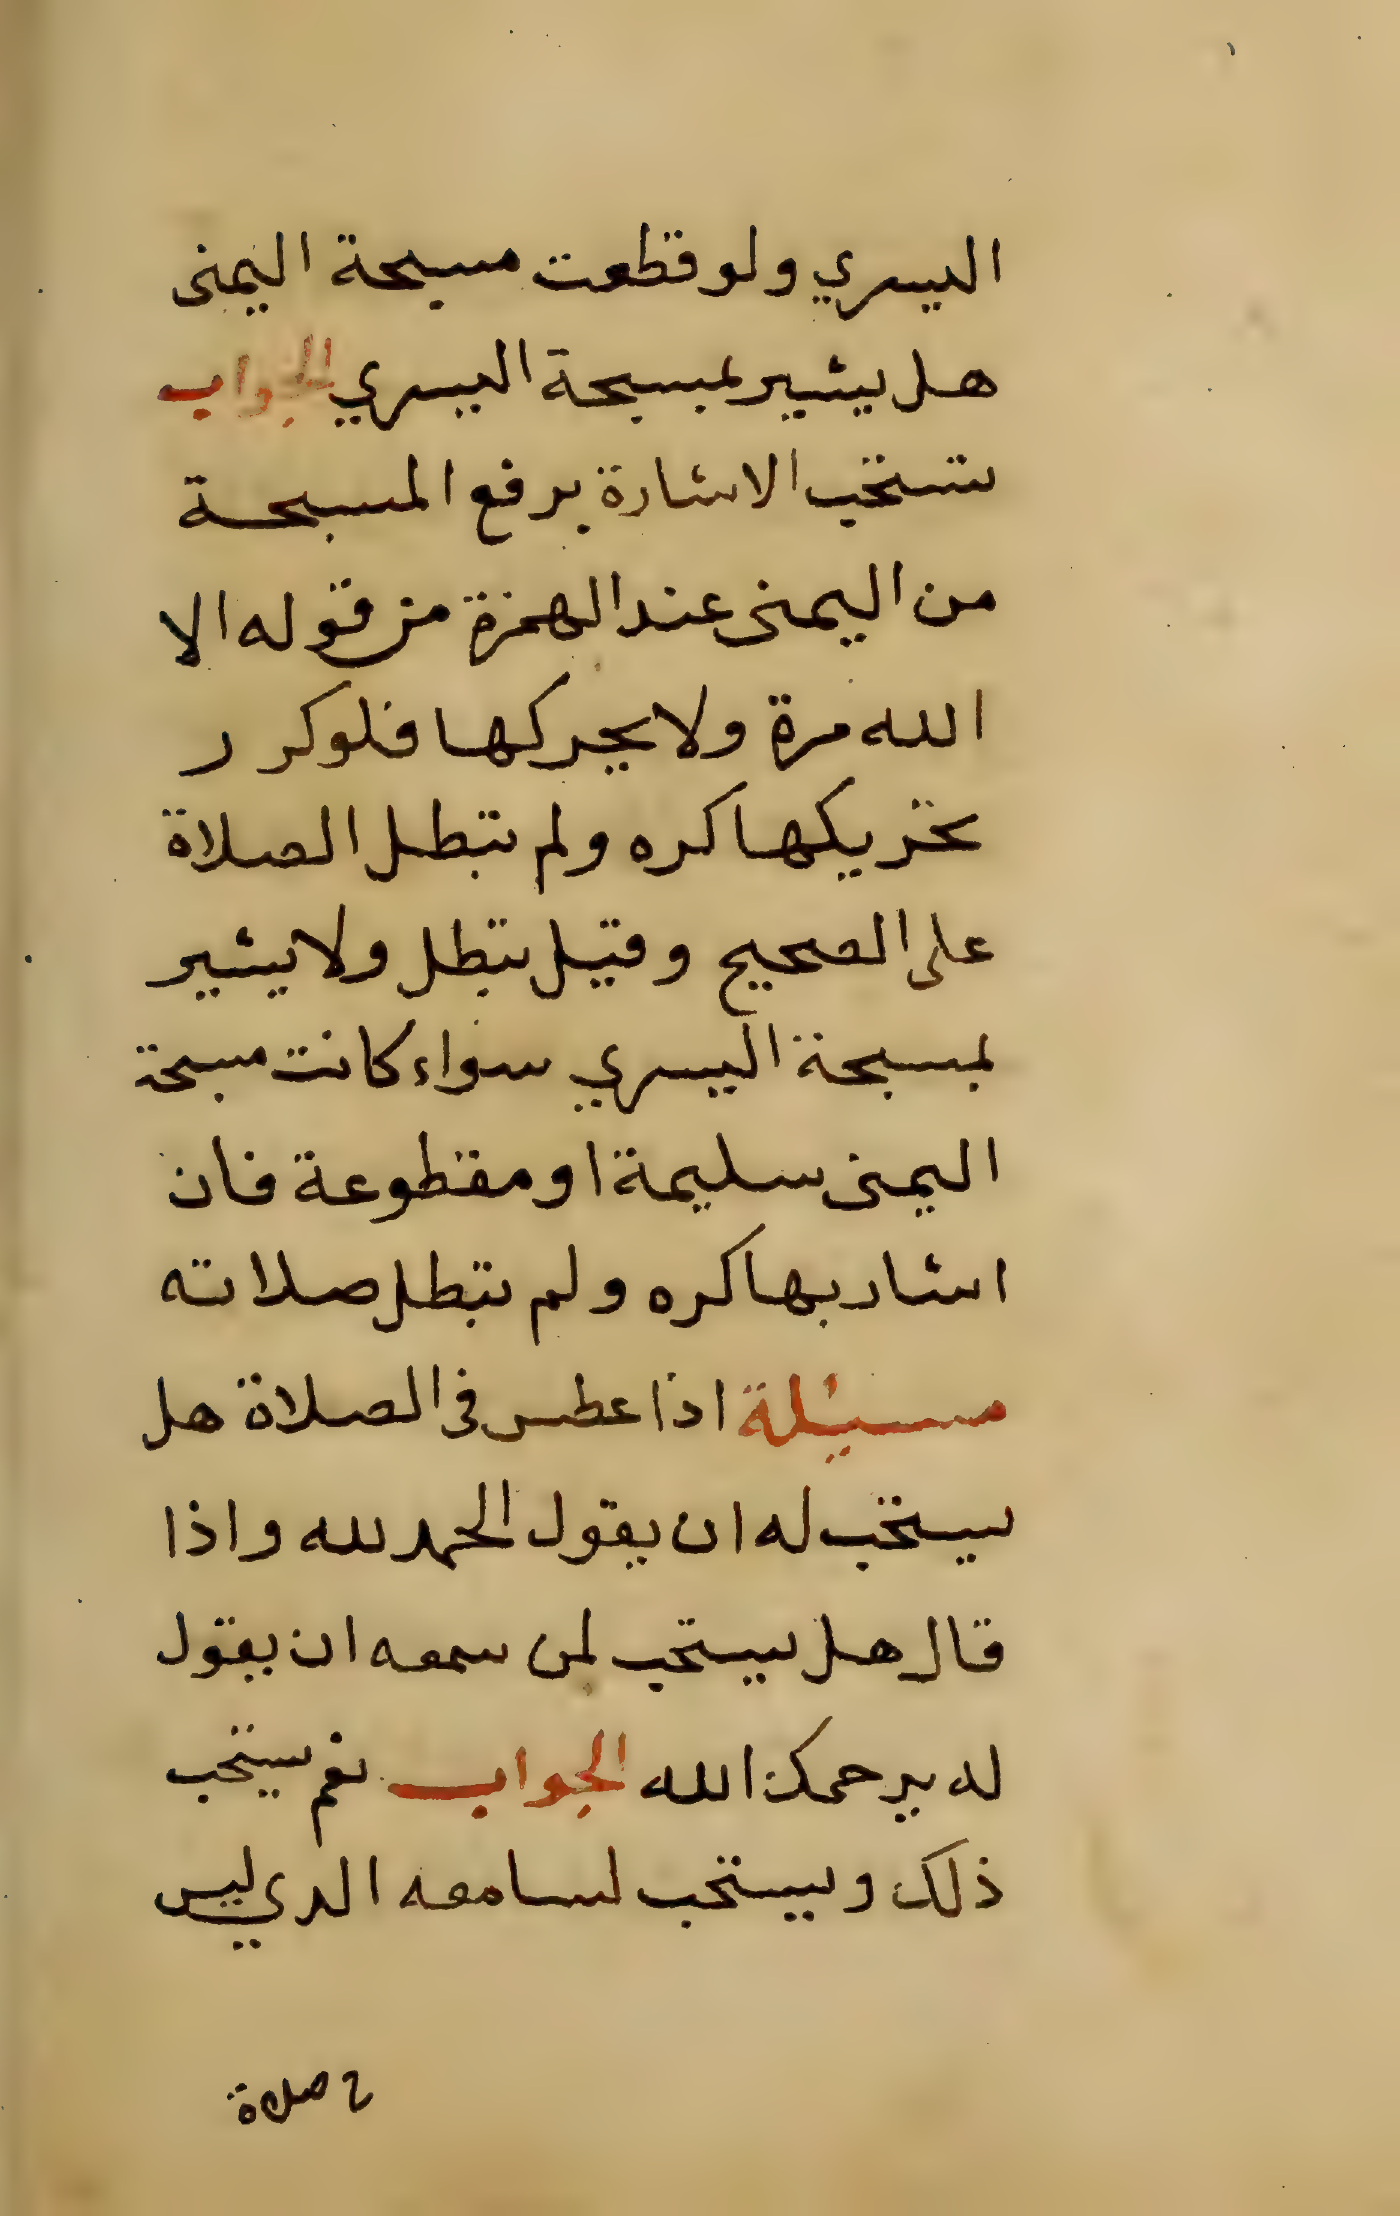 اليسري ولو قطعت مسبحة اليمنى
هل يشير بمسبحة اليسري الجواب
تستحب الاشارة برفع المسبحة
من اليمنى عند الهمزة من قوله الا
الله مرة ولا يحركها فلو كرر
تحريكها كره ولم تبطل الصلاة
على الصحيح وقيل تبطل ولا يشير
بمسبحة اليسري سواء كانت مسبحة
اليمنى سليمة او مقطوعة فان
اشار بها كره ولم تبطل صلاته
مسيلة اذا عطس في الصلاة هل
يستحب له ان يقول الحمد لله واذا
قال هل يستحب لمن سمعه ان يقول
له يرحمك الله الجواب نعم يستحب
ذلك ويستحب لسامعه الدي ليس
صلاة